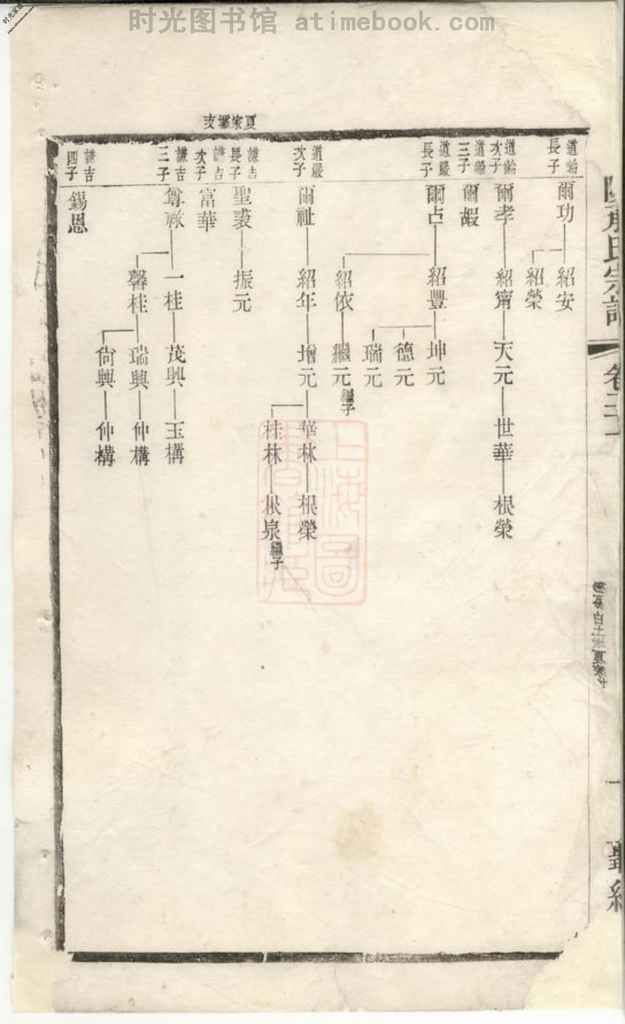 时光图书馆 atimebook.com
長子 爾功 紹安
紹榮
次子 爾孝 紹甯 天元 世華 根榮
三子 爾嘏
道嚴長子 爾占 紹豐 坤元
德元
瑞元
紹依 繼元 繼子
道嚴次子 爾祉 紹年 增元 華林 根榮
桂林 根泉 繼子
謙吉長子 聖裘 振元
謙吉次子 富華
謙吉三子 尊承 一桂 茂興 玉構
馨桂 瑞興 仲構
尙興 仲構
謙吉四子 錫恩
氏宗譜
卷二